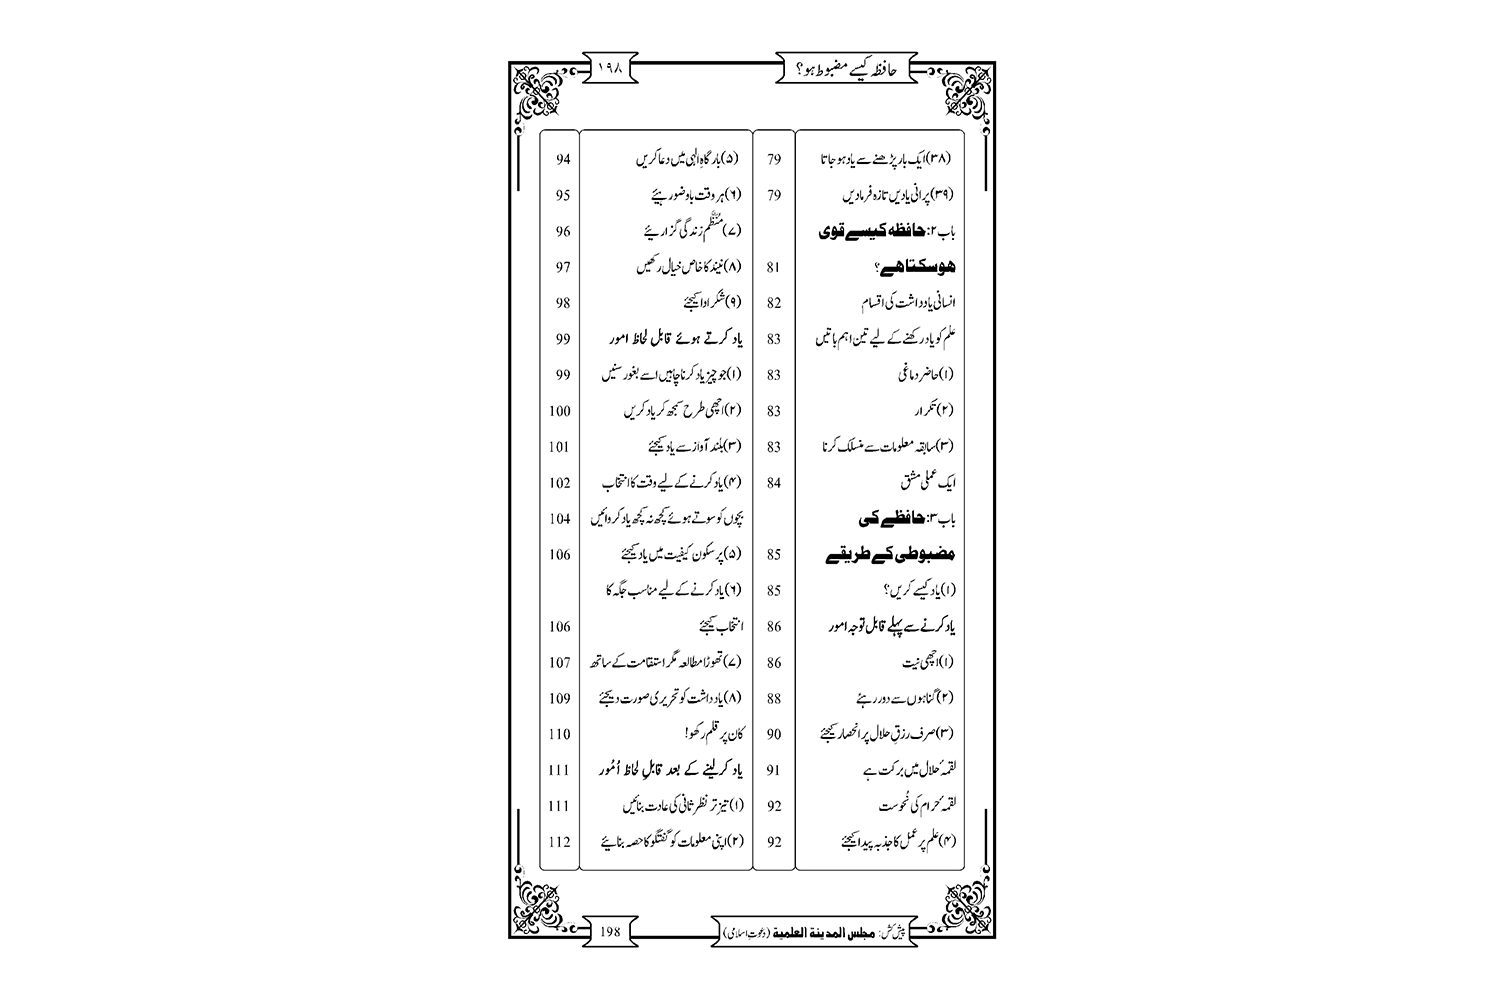 حافظہ کیسے مضبوط ہو؟
۱۹۸
(۳۸)ایک بار پڑھنے سے یاد ہو جاتا 79
(۳۹)پرانی یادیں تازہ فرمادیں 79
باب ۲: حافظہ کیسے قوی
ہوسکتا ہے؟ 81
انسانی یادداشت کی اقسام 82
علم کو یاد رکھنے کے لیے تین اہم باتیں 83
(۱)حاضر دماغی 83
(۲)تکرار 83
(۳)سابقہ معلومات سے منسلک کرنا 83
ایک عملی مشق 84
باب ۳: حافظے کی
مضبوطی کے طریقے 85
(۱)یاد کیسے کریں؟ 85
یاد کرنے سے پہلے قابل توجہ امور 86
(۱)اچھی نیت 86
(۲)گناہوں سے دور رہئے 88
(۳)صرف رزقِ حلال پر انحصار کیجئے 90
لقمۂ حلال میں برکت ہے 91
لقمۂ حرام کی نُحوست 92
(۴)علم پر عمل کا جذبہ پیدا کیجئے 92
(۵)بارگاہِ الٰہی میں دعا کریں 94
(۶)ہر وقت باوضو رہیئے 95
(۷)مُنَظَّم زندگی گزاریئے 96
(۸)نیند کا خاص خیال رکھیں 97
(۹)شکر ادا کیجئے 98
یاد کرتے ہوئے قابل لحاظ امور 99
(۱)جو چیز یاد کرنا چاہیں اسے بغور سنیں 99
(۲)اچھی طرح سمجھ کر یاد کریں 100
(۳)بلند آواز سے یاد کیجئے 101
(۴)یاد کرنے کے لیے وقت کا انتخاب 102
بچوں کو سوتے ہوئے کچھ نہ کچھ یاد کروائیں 104
(۵)پر سکون کیفیت میں یاد کیجئے 106
(۶)یاد کرنے کے لیے مناسب جگہ کا
انتخاب کیجئے 106
(۷)تھوڑا مطالعہ مگر استقامت کے ساتھ 107
(۸)یادداشت کو تحریری صورت دیجئے 109
کان پر قلم رکھو! 110
یاد کرلینے کے بعد قابلِ لحاظ اُمُور 111
(۱)تیز تر نظر ثانی کی عادت بنائیں 111
(۲)اپنی معلومات کو گفتگو کا حصہ بنایئے 112
پیش کش: مجلس المدینة العلمیة (دعوتِ اسلامی)
198